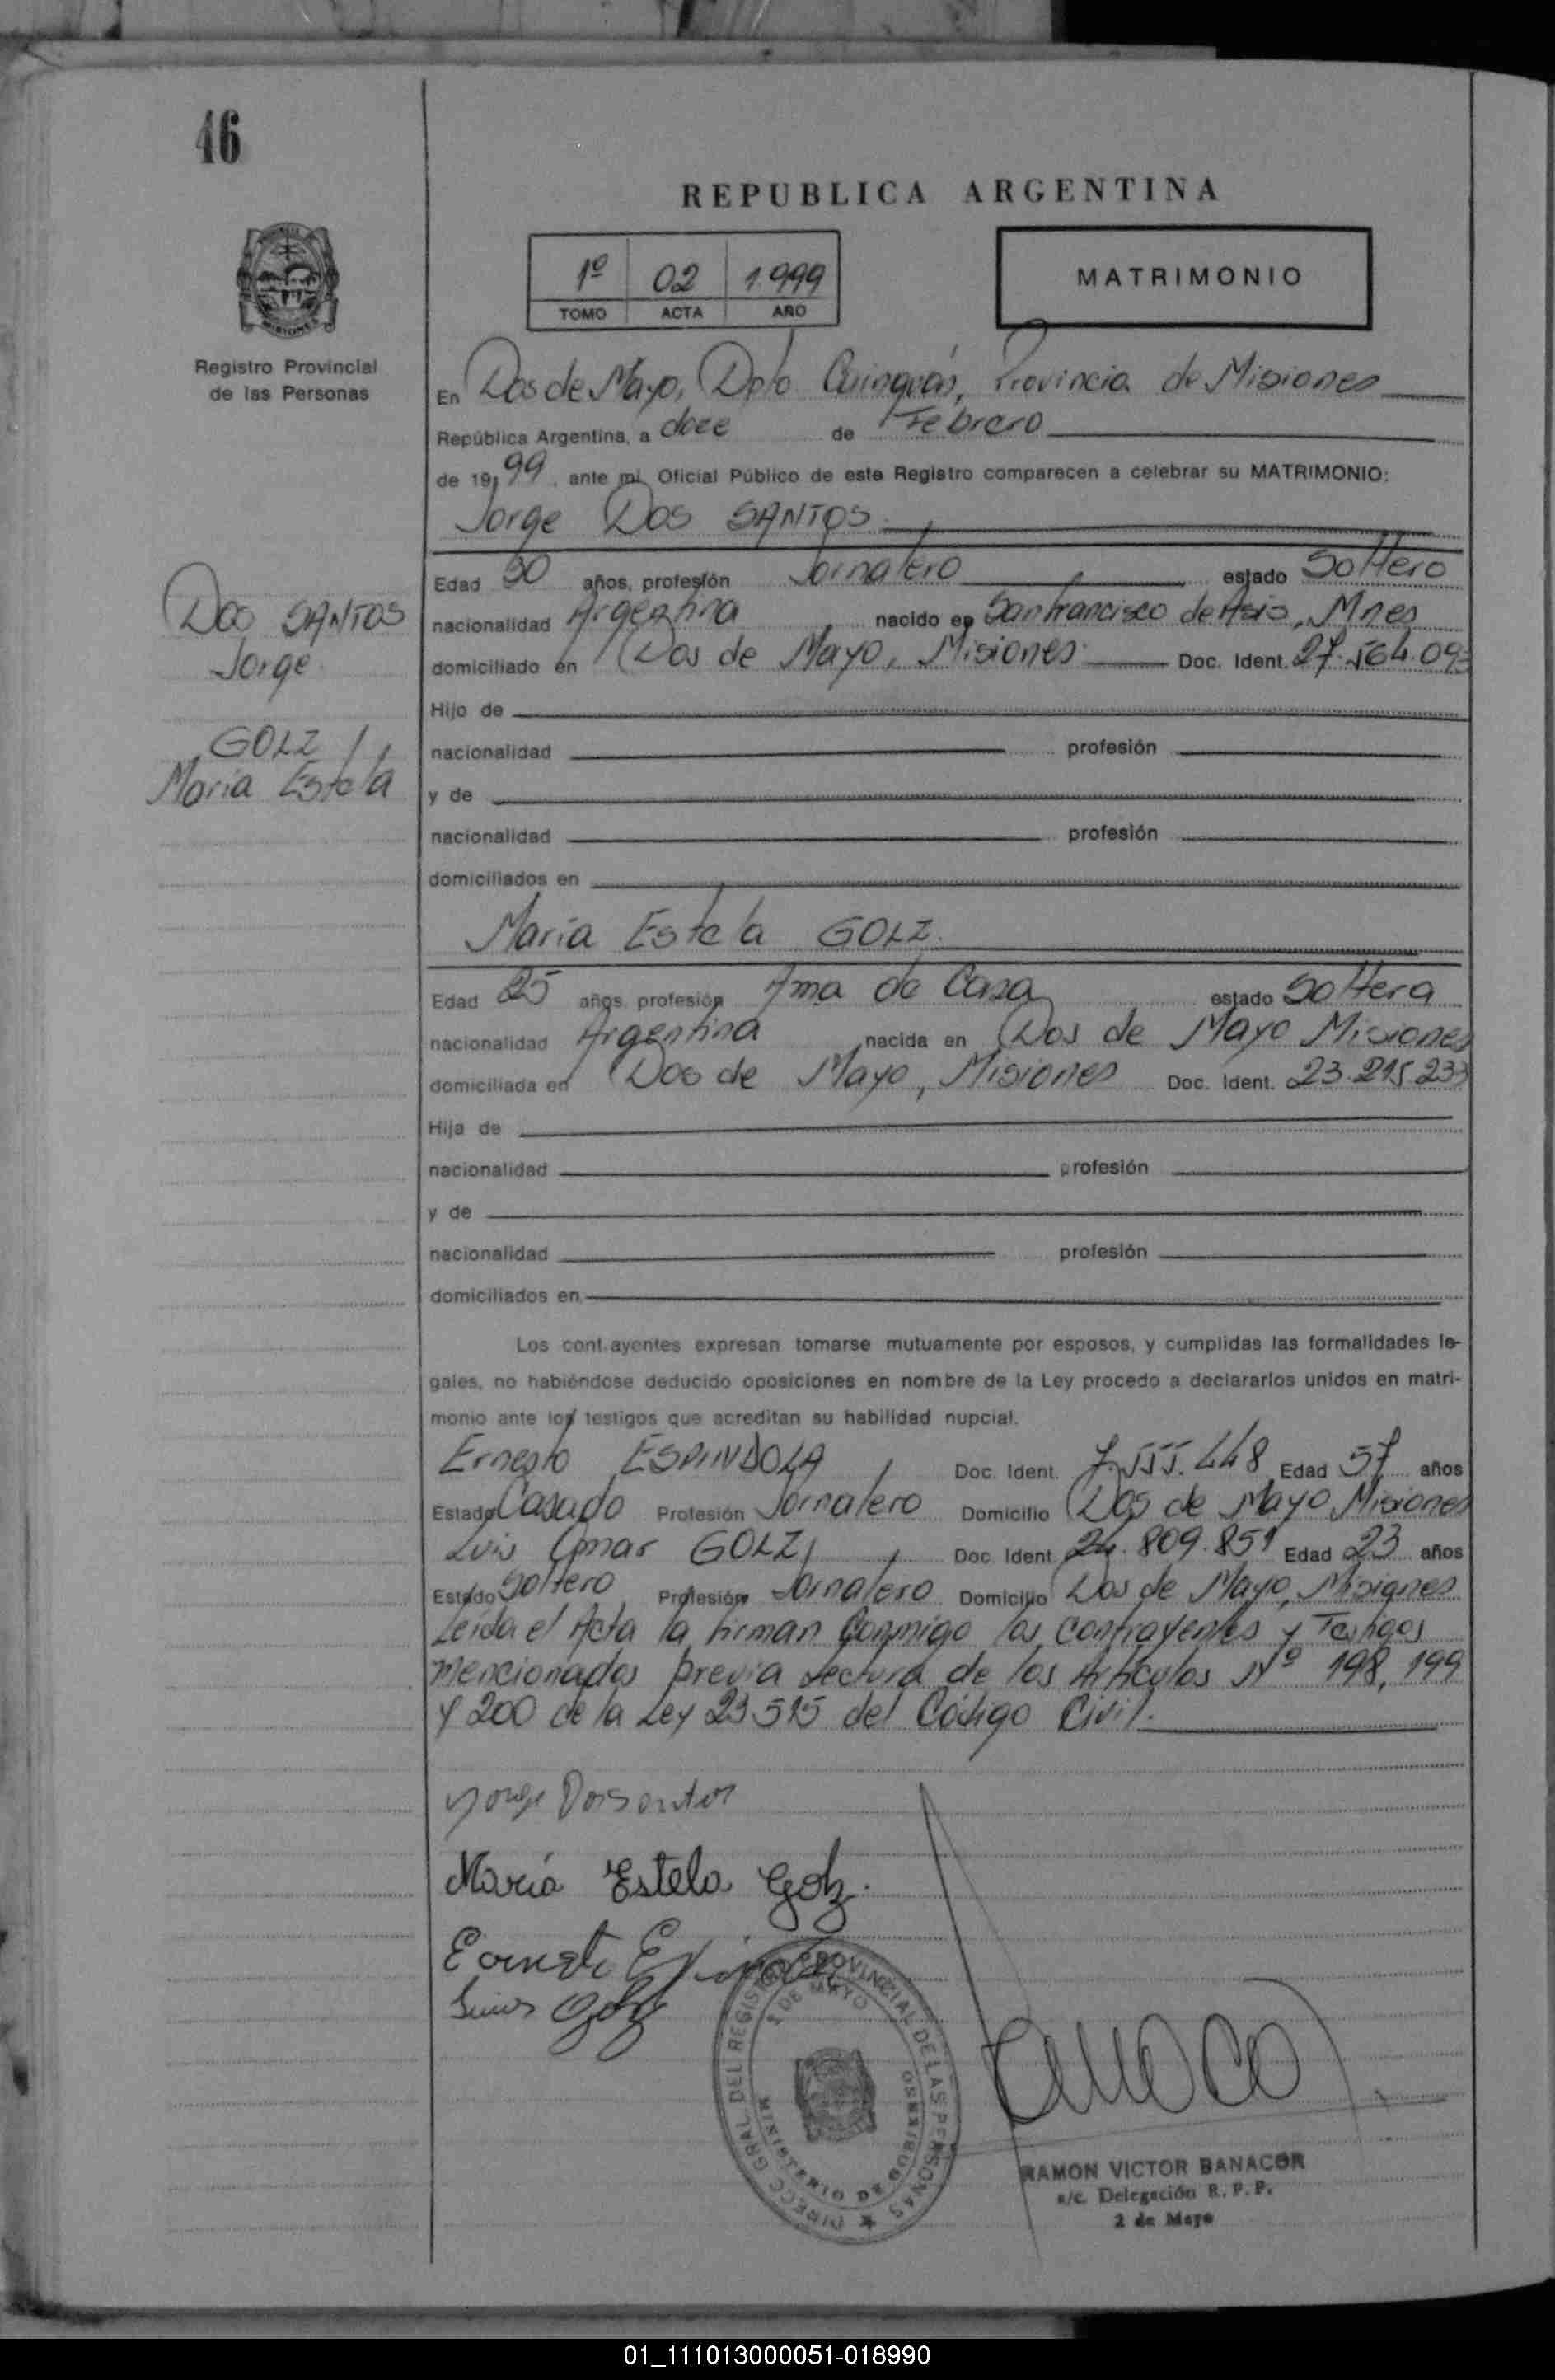 46
REPUBLICA ARGENTINA
1º 02 1.999
TOMO ACTA AÑO
MATRIMONIO
MISIONES
Registro Provincial
de las Personas
En Dos de Mayo, Dpto Cainguás, Provincia de Misiones
República Argentina, a doce de Febrero
de 1999, ante mi Oficial Público de este Registro comparecen a celebrar su MATRIMONIO:
Jorge Dos SANTOS
Edad 30 años, profesión Jornalero estado Soltero
nacionalidad Argentina nacido en San Francisco de Asis, Mnes
domiciliado en Dos de Mayo, Misiones Doc. Ident. 27.564.093
Hijo de
nacionalidad profesión
y de
nacionalidad profesión
domiciliados en
Dos SANTOS
Jorge
GOLZ
María Estela
María Estela GOLZ.
Edad 25 años, profesión Ama de Casa estado Soltera
nacionalidad Argentina nacida en Dos de Mayo Misiones
domiciliada en Dos de Mayo, Misiones Doc. Ident. 23.215.233
Hija de
nacionalidad profesión
y de
nacionalidad profesión
domiciliados en
Los contrayentes expresan tomarse mutuamente por esposos, y cumplidas las formalidades le-
gales, no habiéndose deducido oposiciones en nombre de la Ley procedo a declararlos unidos en matri-
monio ante los testigos que acreditan su habilidad nupcial.
Ernesto ESPINDOLA, Doc. Ident. 7.555.448 Edad 57 años
Estado Casado Profesión Jornalero Domicilio Dos de Mayo, Misiones
Luis Omar GOLZ, Doc. Ident. 24.809.851 Edad 23 años
Estado Soltero Profesión Jornalero Domicilio Dos de Mayo, Misiones
Leída el Acta la firman Conmigo los contrayentes y Testigos
mencionados previa Lectura de los Artículos Nº 198, 199
y 200 de la Ley 23.515 del Código Civil.
Jorge Dos santos
María Estela Golz.
Ernesto Espindola
Luis Golz
DIRECC. GRAL. DEL REGISTRO PROVINCIAL DE LAS PERSONAS
2 DE MAYO
MINISTERIO DE GOBIERNO
RAMON VICTOR BANACOR
a/c. Delegación R. P. P.
2 de Mayo
01_111013000051-018990